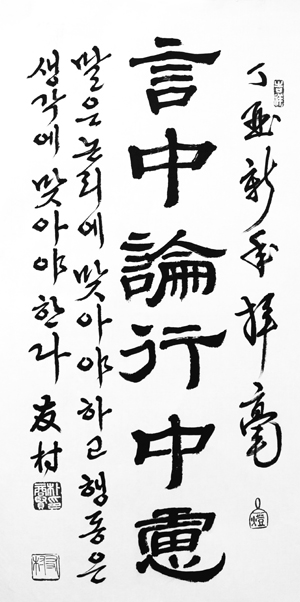 丁酉新年揮毫
言中論行中慮
말은 논리에 맞아야 하고 행동은
생각에 맞아야 한다 友村